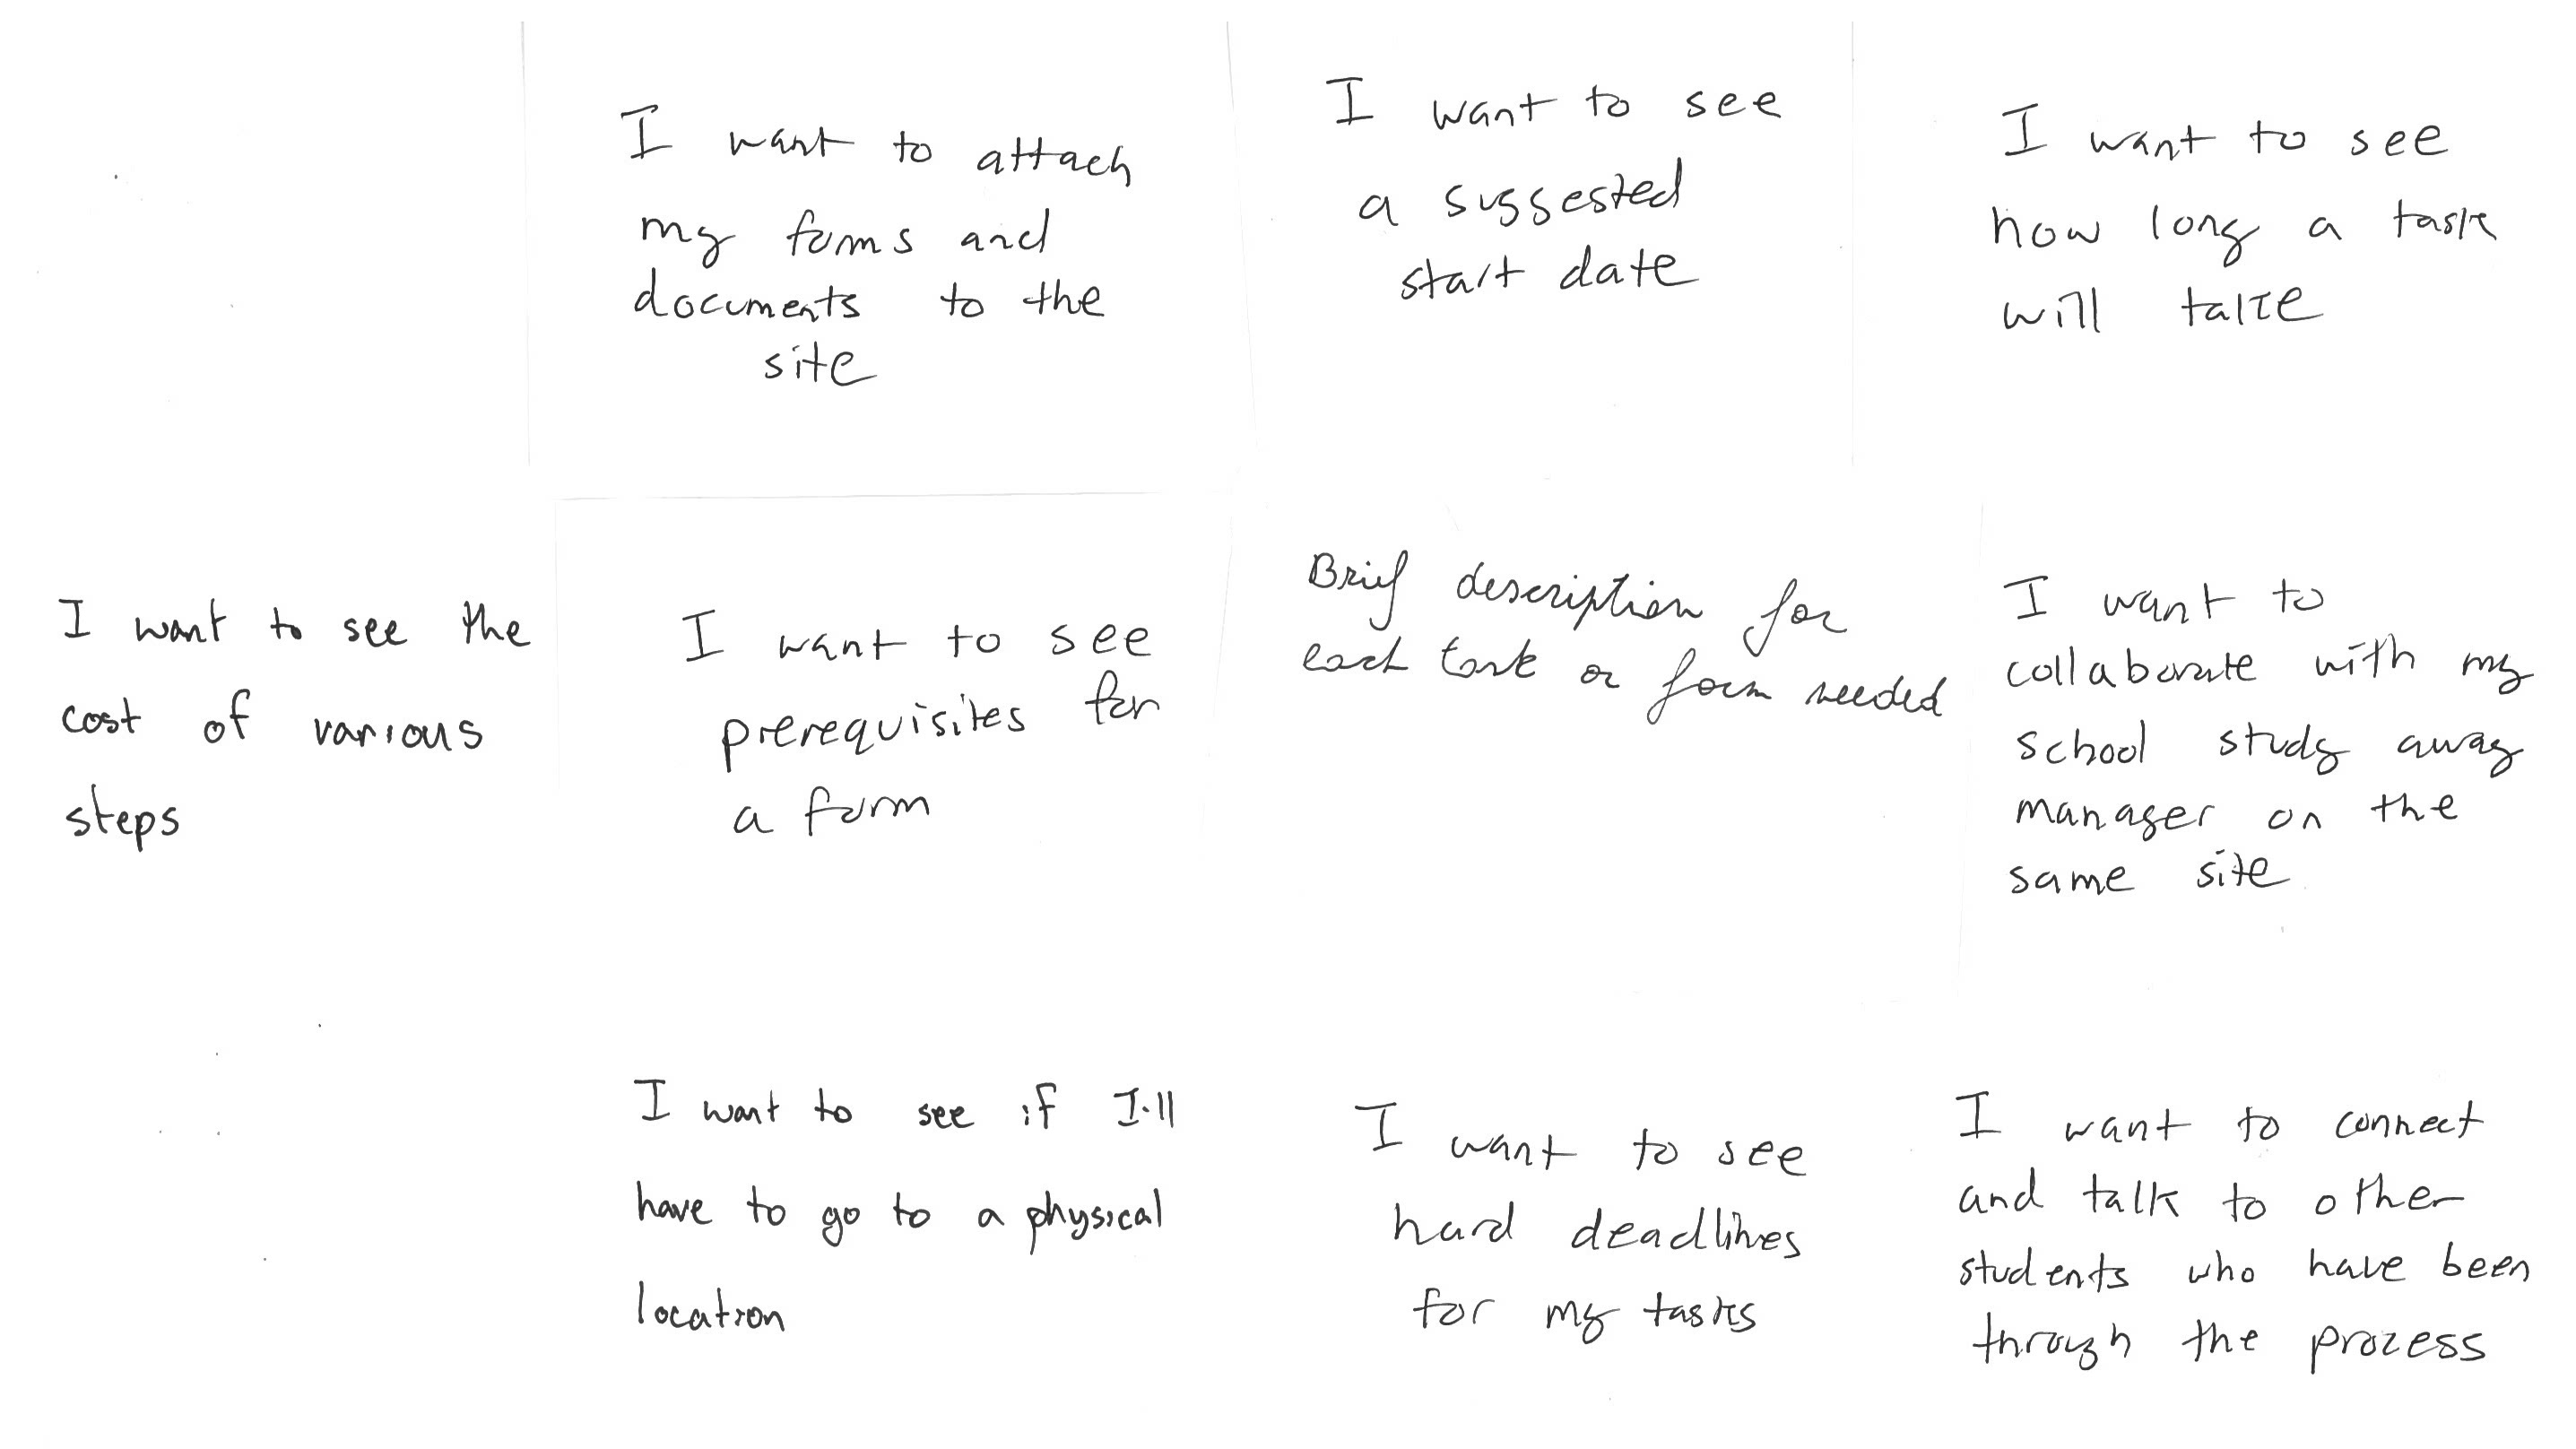 I want to attach
my forms and
documents to the
site
I want to see
a suggested
start date
I want to see
how long a task
will take
I want to see the
cost of various
steps
I want to see
prerequisites for
a form
Brief description for
each task or form needed
I want to
collaborate with my
school study away
manager on the
same site
I want to see if I'll
have to go to a physical
location
I want to see
hard deadlines
for my tasks
I want to connect
and talk to other
students who have been
through the process